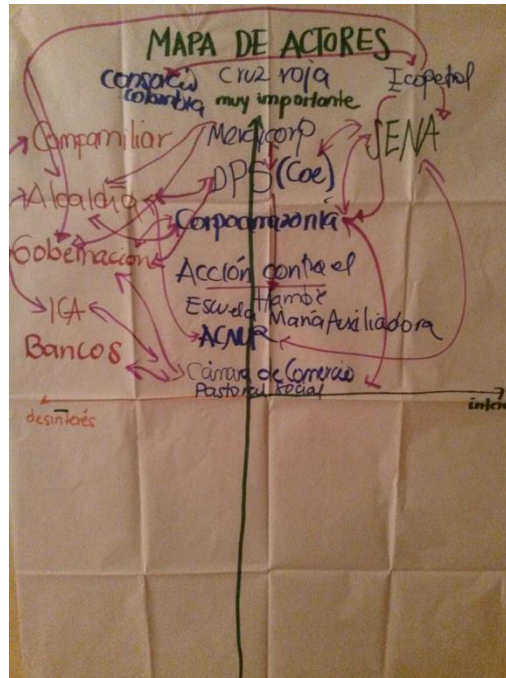 MAPA DE ACTORES
consorcio colombia
cruz roja
Ecopetrol
muy importante
Compamiliar
Mercycorp
SENA
DPS (Coe)
Alcaldía
Corpoamazonía
Gobernación
Acción contra el
Hambre
Escuela María Auxiliadora
ICA
ACNUR
Bancos
Cámara de Comercio
Pastoral social
desinterés